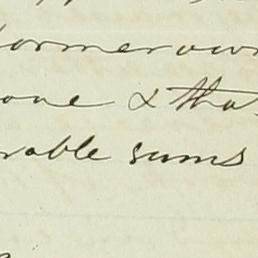 former own
one & tha
rable sums